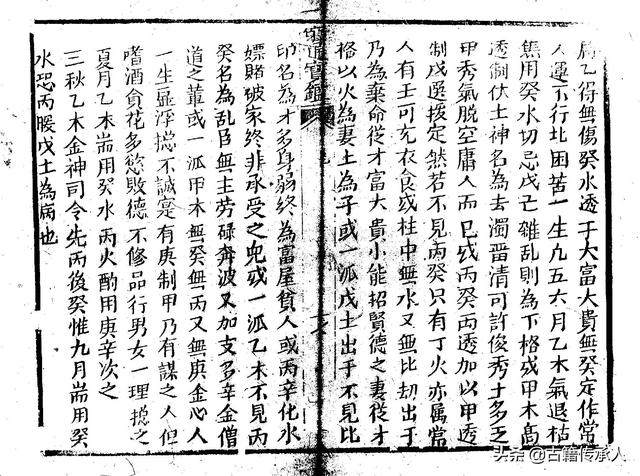 屬乙得無傷癸水透干大富大貴無癸定作常
人運不行北困苦一生凢五六月乙木氣退枯
焦用癸水切忌戊己雜亂則為下格或甲木高
透制伏土神名為去濁畱清可許俊秀土多乏
甲秀氣脫空庸人而已或丙癸兩透加以甲透
制戊選拔定然若不見丙癸只有丁火亦屬常
人有壬可充衣食或柱中無水又無比刼出干
乃為棄命從才富大貴小能招賢德之妻從才
格以火為妻土為子或一派戊土出干不見比
窮通寶鑑
印名為才多身弱終為富屋貧人或丙辛化水
嫖賭破家終非承受之兒或一派乙木不見丙
癸名為亂臣無主勞碌奔波又加支多辛金僧
道之輩或一派甲木無癸無丙又無庚金心人
一生虛浮揔不誠寔有庚制甲乃有謀之人但
嗜酒貪花多慾敗德不修品行男女一理揔之
夏月乙木耑用癸水丙火酌用庚辛次之
三秋乙木金神司令先丙後癸惟九月耑用癸
水恐丙暖戊土為病也
头条 @古籍传承人